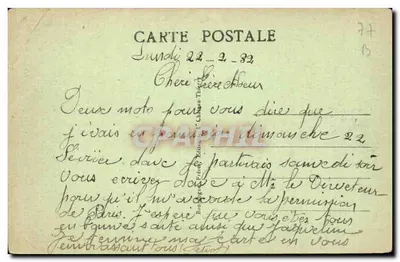 CARTE POSTALE
77
B
Lundi 22-2-82
Cheri frère et Sœur
Deux moto pour vous dire que
j'irais en dimanche 22
fevrier donc je partirais samedi soir
vous ecrirez donc a Mr le Directeur
pour qu'il m'accoste la permission
de Paris. J'espère que vous etes tous
en bonne sante ainsi que
Je termine ma carte en vous
embrassant tous
CPAPHIL